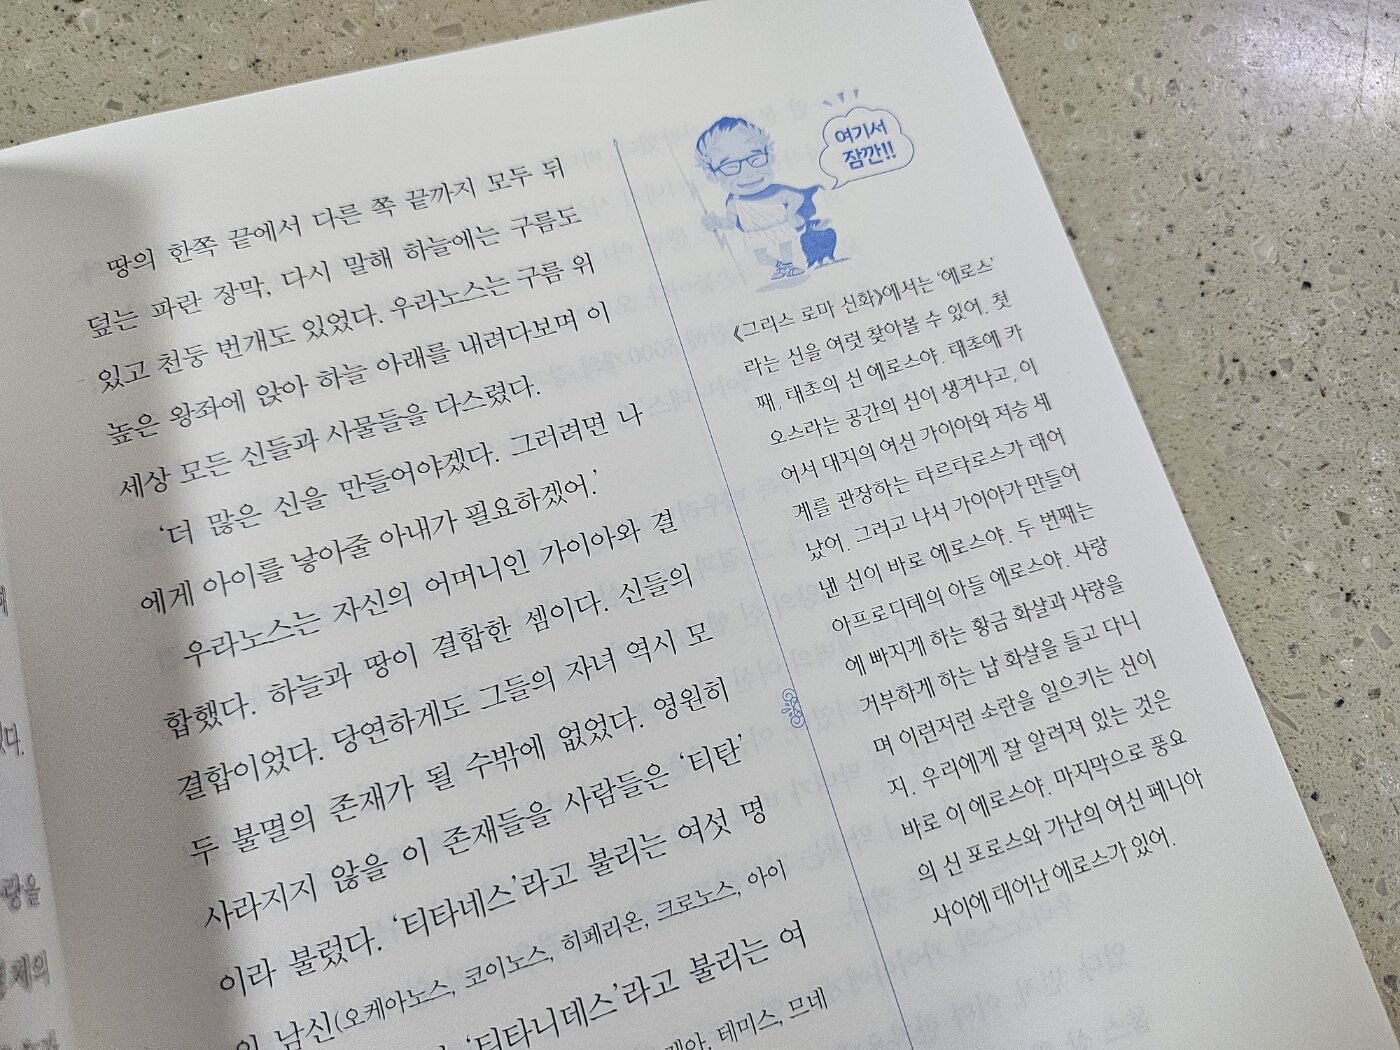 땅의 한쪽 끝에서 다른 쪽 끝까지 모두 뒤
덮는 파란 장막, 다시 말해 하늘에는 구름도
있고 천둥 번개도 있었다. 우라노스는 구름 위
높은 왕좌에 앉아 하늘 아래를 내려다보며 이
세상 모든 신들과 사물들을 다스렸다.
‘더 많은 신을 만들어야겠다. 그러려면 나
에게 아이를 낳아줄 아내가 필요하겠어.’
우라노스는 자신의 어머니인 가이아와 결
합했다. 하늘과 땅이 결합한 셈이다. 신들의
결합이었다. 당연하게도 그들의 자녀 역시 모
두 불멸의 존재가 될 수밖에 없었다. 영원히
사라지지 않을 이 존재들을 사람들은 ‘티탄’
이라 불렀다. ‘티타네스’라고 불리는 여섯 명
의 남신(오케아노스, 코이노스, 히페리온, 크로노스, 아이
‘티타니데스’라고 불리는 여
테미스, 므네
여기서
잠깐!!
《그리스 로마 신화》에서는 ‘에로스’
라는 신을 여럿 찾아볼 수 있어. 첫
째, 태초의 신 에로스야. 태초에 카
오스라는 공간의 신이 생겨나고, 이
어서 대지의 여신 가이아와 저승 세
계를 관장하는 타르타로스가 태어
났어. 그러고 나서 가이아가 만들어
낸 신이 바로 에로스야. 두 번째는
아프로디테의 아들 에로스야. 사랑
에 빠지게 하는 황금 화살과 사랑을
거부하게 하는 납 화살을 들고 다니
며 이런저런 소란을 일으키는 신이
지. 우리에게 잘 알려져 있는 것은
바로 이 에로스야. 마지막으로 풍요
의 신 포로스와 가난의 여신 페니아
사이에 태어난 에로스가 있어.